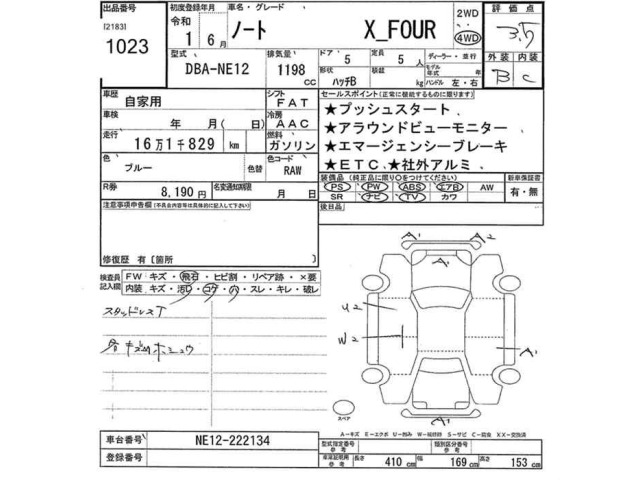 出品番号 初度登録年月 車名・グレード 2WD 評価点
[2183] 令和 1年 6月 ノート X_FOUR 4WD 3.5
1023
型式 排気量 ドア 5 定員 5人 ディーラー・並行 外装 内装
DBA-NE12 1198cc 形状 ハッチB 積載 kg モデル年式 年 ハンドル 左・右 B C
車歴 自家用 シフト FAT セールスポイント(正常に機能するものに限ります)
車検 年 月(日) 冷房 AAC ★プッシュスタート
走行 16万1千829km 燃料 ガソリン ★アラウンドビューモニター
★エマージェンシーブレーキ
色 ブルー 色替 色コード RAW ★ETC ★社外アルミ
R券 8,190円 名変通知期限 月 日 装備品(純正品に限り○をつけてください) 新車保証書
PS PW ABS エアB AW 有・無
SR ナビ TV カワ
注意事項申告欄(不具合内容等は具体的に記入して下さい) 後日品
修復歴 有〔箇所 〕
検査員記入欄 FW キズ・飛石・ヒビ割・リペア跡・×要
内装 キズ・汚レ・コゲ・穴・スレ・キレ・破レ
スタッドレスT
各キズ凹ホシュウ
A1 A2
A1
U2
W2
A1
A1
スペア
A-キズ E-エクボ U-凹み W-補修跡 S-サビ C-腐食 XX-交換済
車台番号 NE12-222134 型式指定番号 参考 類別区分番号 参考
登録番号 車庫証明用 参考 長さ 410cm 幅 169cm 高さ 153cm